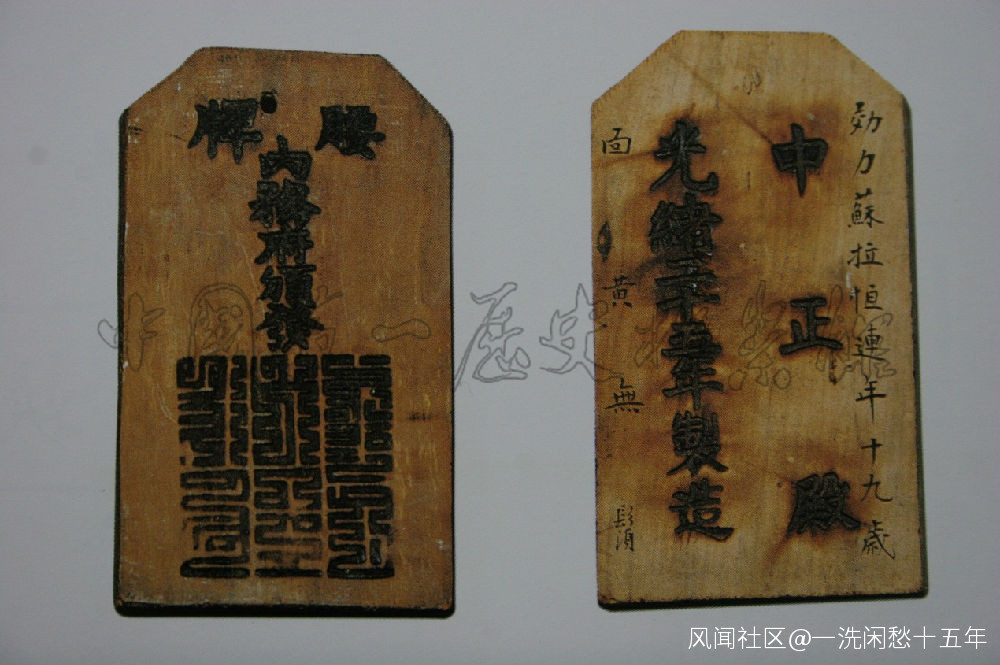 腰牌
内務府頒發
効力蘇拉恒連年十九歲
中正殿
光緒二十五年製造
面黄無鬚
中國第一歷史檔案館
风闻社区@一洗闲愁十五年